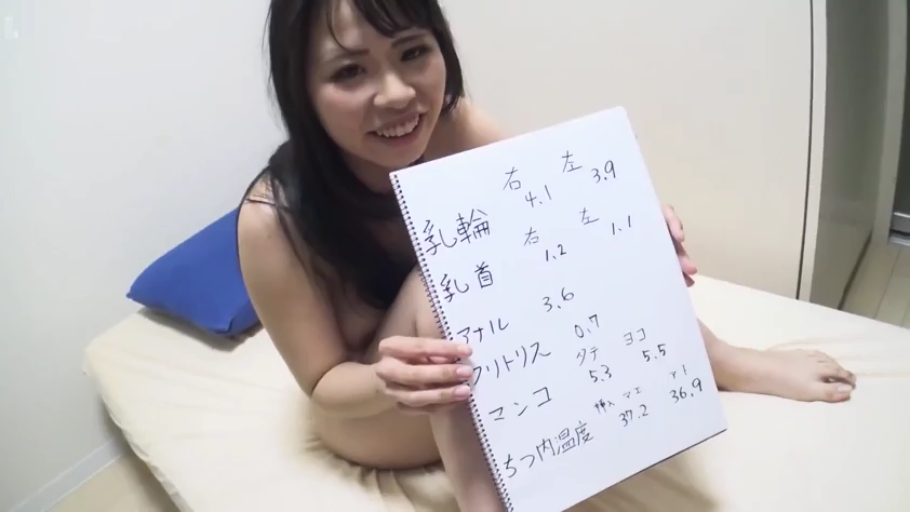 右 左
乳輪 4.1 3.9
右 左
乳首 1.2 1.1
アナル 3.6
クリトリス 0.7
タテ ヨコ
マンコ 5.3 5.5
挿入 マエ
ちつ内温度 37.2 36.9